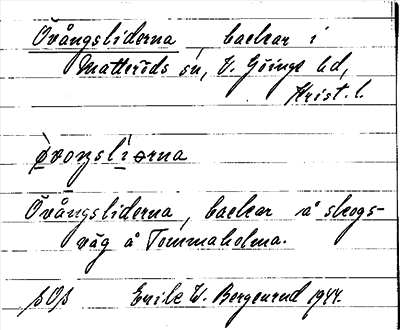 Övångsliderna backar i
Matteröds sn, V. Göinge hd,
Krist. l.
øvoŋslìɘrna
Övångsliderna, backar å skogs-
väg å Tommaholma.
sOs Emilo W. Bergenrud 1944.